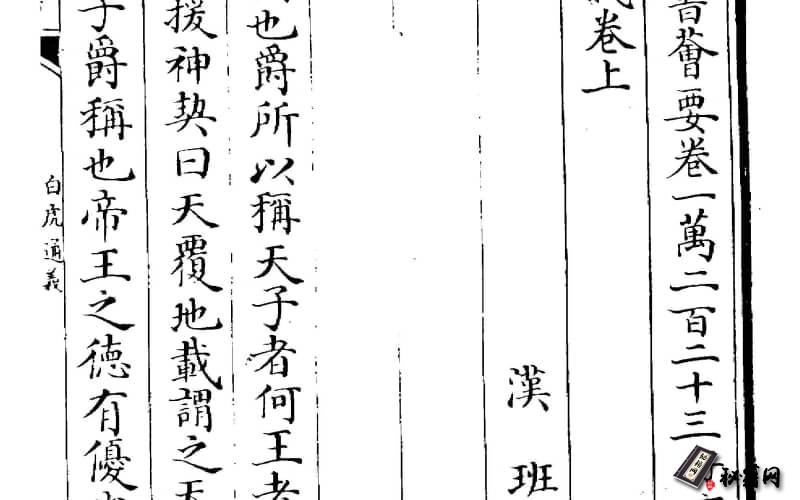 薈要卷一萬二百二十三
卷上
漢 班
也爵所以稱天子者何王者
援神契曰天覆地載謂之天
子爵稱也帝王之德有優
白虎通義
秘籍网